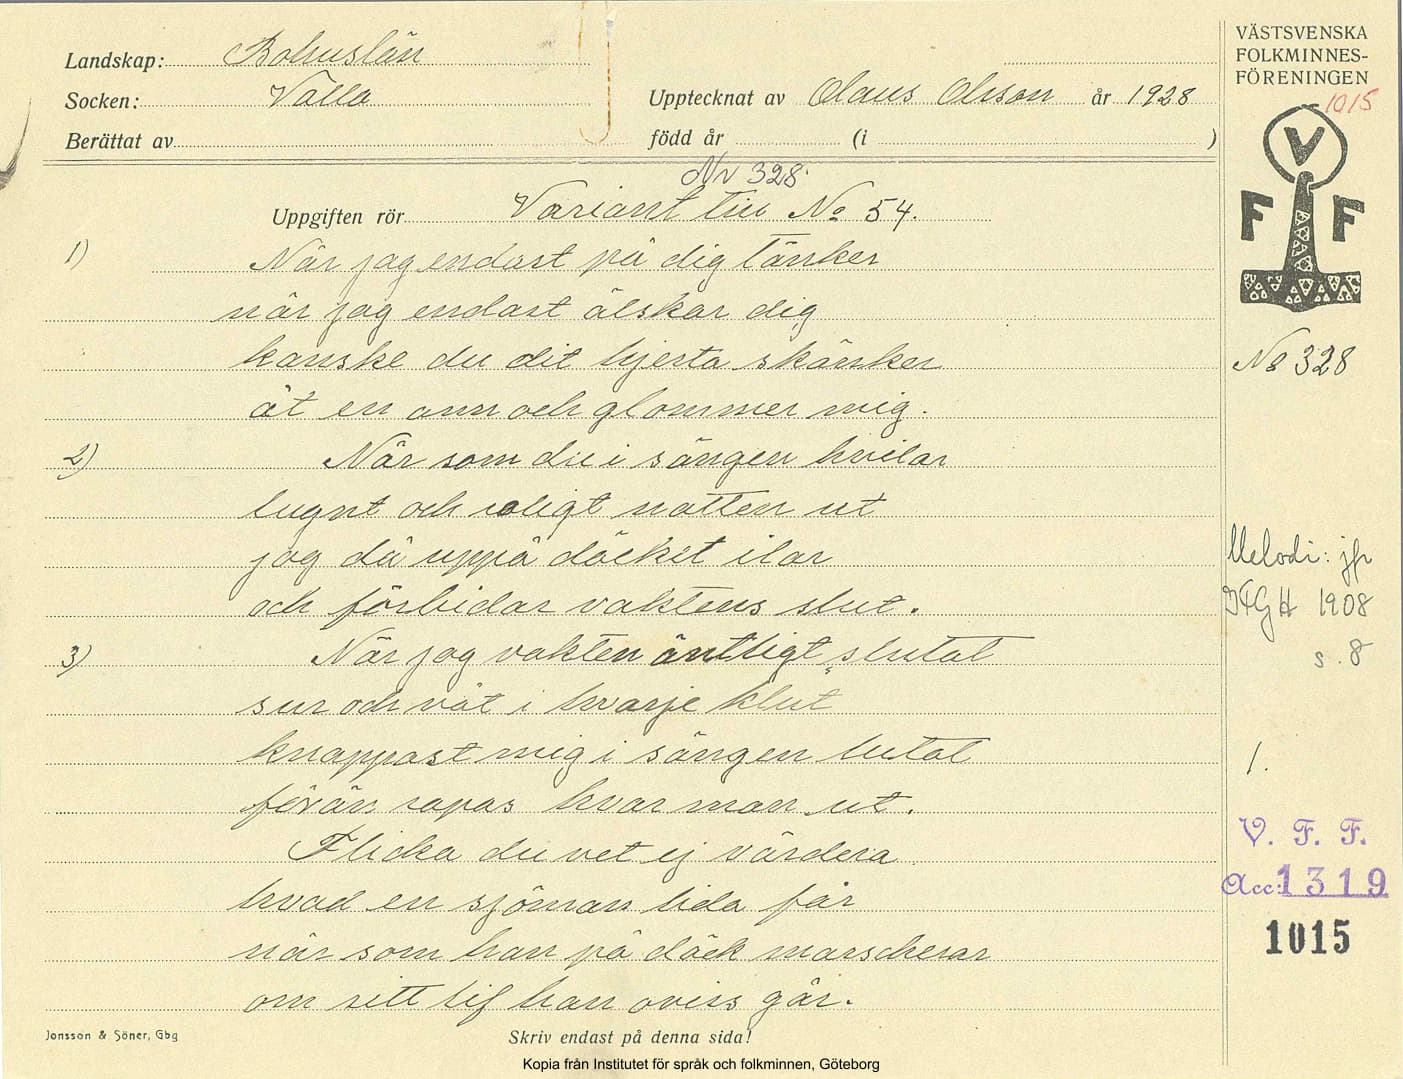 Landskap: Bohuslän
Socken: Valla
Upptecknat av Olaus Olsson år 1928
Berättat av
född år (i )
Nr 328
Uppgiften rör Variant till No 54.
1) När jag endast på dig tänker
när jag endast älskar dig
kanske du dit hjerta skänker
åt en ann och glommer mig.
2) När som du i sängen hvilar
lugnt och roligt natten ut
jag då uppå däcket ilar
och förbidar vaktens slut.
3) När jag vakten äntligt slutat
sur och våt i hvarje klut
knappast mig i sängen lutat
förän ropas hvar man ut.
Flicka du vet ej värdera
hvad en sjöman lida får
när som han på däck marscherar
om sitt lif han oviss går.
Jonsson & Söner, Gbg
Skriv endast på denna sida!
Kopia från Institutet för språk och folkminnen, Göteborg
VÄSTSVENSKA
FOLKMINNES-
FÖRENINGEN
1015
V
F F
No 328
Melodi: jfr
IFGH 1908
s. 8
1.
V. F. F.
Acc: 1319
1015